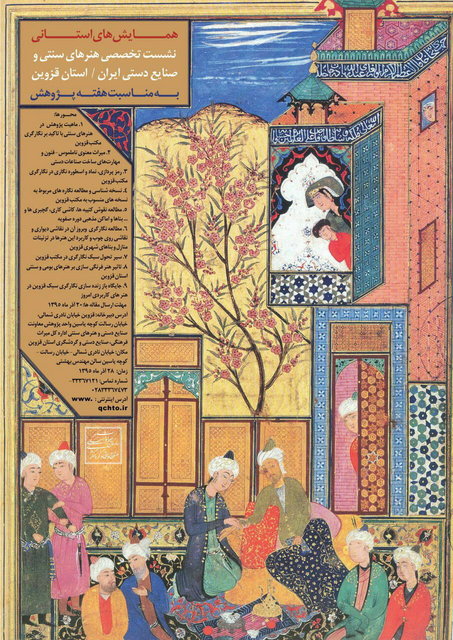 همــایش‌های‌استــانی
نشست تخصصی هنرهای سنتی و
صنایع دستی ایران / استان قزوین
بـه منـاسبت هفتـه پـژوهش
محورها:
۱. ماهیت پژوهش در
هنرهای سنتی با تاکید بر نگارگری
مکتب قزوین
۲. میراث معنوی ناملموس - فنون و
مهارت‌های ساخت صناعات دستی
۳. رمز پردازی، نماد و اسطوره نگاری در نگارگری
مکتب قزوین
۴. نسخه شناسی و مطالعه نگاره های مربوط به
نسخه های منسوب به مکتب قزوین
۵. مطالعه نقوش کتیبه ها، کاشی کاری، گچبری ها و
... بناها و اماکن مذهبی دوره صفویه
۶. مطالعه نگارگری وبروز آن در نقاشی دیواری و
نقاشی روی چوب و کاربرد این هنرها در تزیینات
منازل و بناهای شهری قزوین
۷. سیر تحول سبک نگارگری در مکتب قزوین
۸. تاثیر هنر فرنگی سازی بر هنرهای بومی و سنتی
استان قزوین
۹. جایگاه باز زنده سازی نگارگری سبک قزوین در
هنر های کاربردی امروز
مهلت ارسال مقاله ها: ۲۰ آذر ماه ۱۳۹۵
آدرس دبیرخانه: قزوین خیابان نادری شمالی،
خیابان رسالت کوچه یاسین واحد پژوهش معاونت
صنایع دستی و هنرهای سنتی اداره کل میراث
فرهنگی، صنایع دستی و گردشگری استان قزوین
مکان: خیابان نادری شمالی - خیابان رسالت -
کوچه یاسین سالن مهندس بهشتی
زمان: ۲۸ آذر ماه ۱۳۹۵
شماره تماس: ۳۳۳۶۷۱۲۱-
۰۲۸۳۳۳۶۷۴۷۳
آدرس اینترنتی: www.
qchto.ir